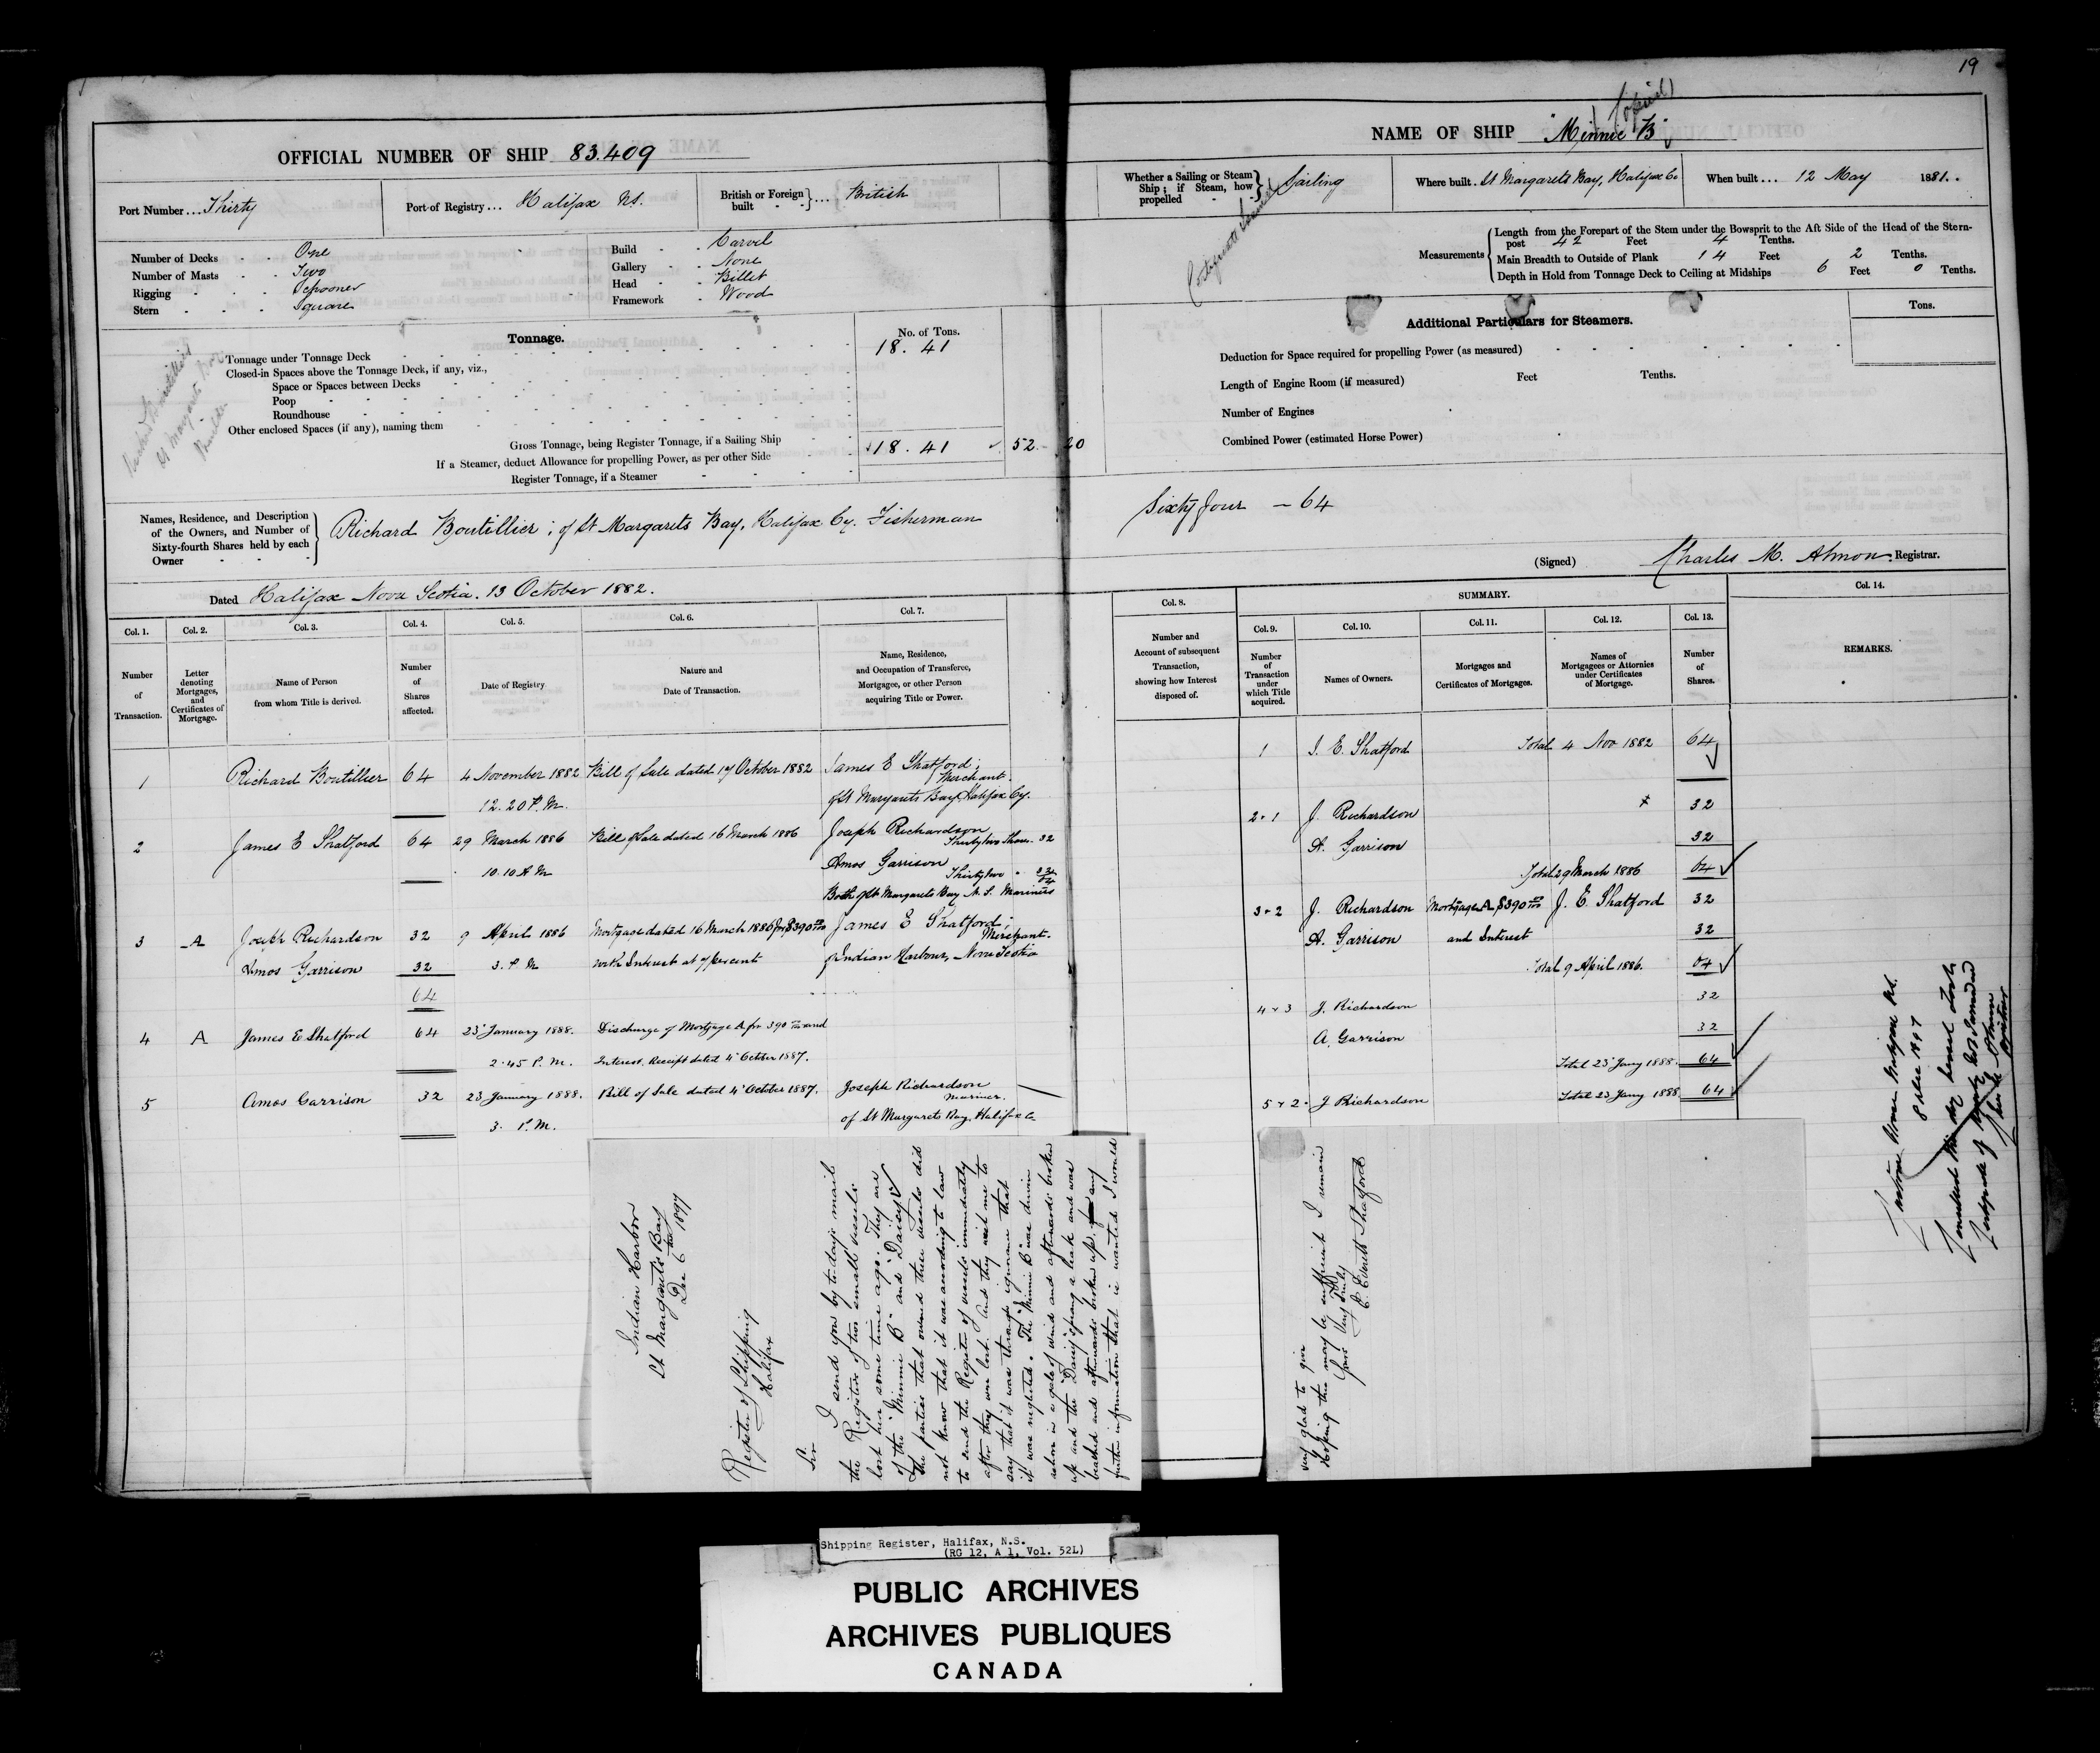 19
OFFICIAL NUMBER OF SHIP 83.409
NAME OF SHIP "Minnie B"
(Copied)
Port Number ... Thirty
Port of Registry ... Halifax NS.
British or Foreign built ... British
Whether a Sailing or Steam Ship; if Steam, how propelled Sailing
Where built . St Margarets Bay, Halifax Co
When built ... 12 May 1881.
Number of Decks One
Number of Masts Two
Rigging Schooner
Stern Square
Build Carvel
Gallery None
Head Billet
Framework Wood
Measurements
Length from the Forepart of the Stem under the Bowsprit to the Aft Side of the Head of the Stern-
post 42 Feet 4 Tenths.
Main Breadth to Outside of Plank 14 Feet 2 Tenths.
Depth in Hold from Tonnage Deck to Ceiling at Midships 6 Feet 0 Tenths.
Tonnage.
No. of Tons.
Tonnage under Tonnage Deck 18. 41
Closed-in Spaces above the Tonnage Deck, if any, viz.,
Space or Spaces between Decks
Poop
Roundhouse
Other enclosed Spaces (if any), naming them
Gross Tonnage, being Register Tonnage, if a Sailing Ship 18. 41 52. 20
If a Steamer, deduct Allowance for propelling Power, as per other Side
Register Tonnage, if a Steamer
Richard Boutillier
St Margarets Bay
Builder
Additional Particulars for Steamers.
Tons.
Deduction for Space required for propelling Power (as measured)
Length of Engine Room (if measured) Feet Tenths.
Number of Engines
Combined Power (estimated Horse Power)
Names, Residence, and Description
of the Owners, and Number of
Sixty-fourth Shares held by each
Owner
Richard Boutillier; of St Margarets Bay, Halifax Cy. Fisherman
Sixty four - 64
Dated Halifax Nova Scotia. 13 October 1882.
(Signed) Charles M. Almon Registrar.
Col. 1. Col. 2. Col. 3. Col. 4. Col. 5. Col. 6. Col. 7.
Number of Transaction.
Letter denoting Mortgages, and Certificates of Mortgage.
Name of Person from whom Title is derived.
Number of Shares affected.
Date of Registry
Nature and Date of Transaction.
Name, Residence, and Occupation of Transferee, Mortgagee, or other Person acquiring Title or Power.
Col. 8.
Number and Account of subsequent Transaction, showing how Interest disposed of.
SUMMARY.
Col. 9. Col. 10. Col. 11. Col. 12. Col. 13.
Number of Transaction under which Title acquired.
Names of Owners.
Mortgages and Certificates of Mortgages.
Names of Mortgagees or Attornies under Certificates of Mortgage.
Number of Shares.
Col. 14.
REMARKS.
1 Richard Boutillier 64 4 November 1882 Bill of Sale dated 17 October 1882 James E Shatford;
12.20 P.M. Merchant.
of St Margarets Bay, Halifax Cy.
2 James E Shatford 64 29 March 1886 Bill of Sale dated 16 March 1886 Joseph Richardson
Thirty two Shares 32
10.10 A M Amos Garrison
Thirty two " 32
64
Both of St Margarets Bay N.S. Mariners
3 A Joseph Richardson 32 9 April 1886 Mortgage dated 16 March 1886 for $390 James E Shatford;
Merchant.
Amos Garrison 32 3. P. M with Interest at 7 percent of Indian Harbour, Nova Scotia
64
4 A James E Shatford 64 23 January 1888. Discharge of Mortgage A for 390 and
2.45 P. M. Interest. Receipt dated 4 October 1887.
5 Amos Garrison 32 23 January 1888. Bill of Sale dated 4 October 1887. Joseph Richardson
Mariner.
3. P.M. of St Margarets Bay, Halifax Co
1 J. E. Shatford Total 4 Nov 1882 64
2+1 J. Richardson 32
A. Garrison 32
Total 29 March 1886 64
3+2 J. Richardson Mortgage A $390 J. E. Shatford 32
A. Garrison and Interest 32
Total 9 April 1886. 64
4+3 J. Richardson 32
A. Garrison 32
Total 23 Jany 1888. 64
5+2. J Richardson Total 23 Jany 1888 64
Indian Harbor
St Margarets Bay
Dec 6 1897
Register of Shipping
Halifax
Sir
I send you by to-days mail
the Registers of two small vessels
lost here some time ago. They are
of the "Minnie B" and "Daisy"
The parties that owned these vessels did
not know that it was according to law
to send the Register of vessels immediately
after they were lost. And they wish me to
say that it was through ignorance that
it was neglected. The "Minnie B" was driven
ashore in a gale of wind and afterwards broken
up and the "Daisy" sprang a leak and was
beached and afterwards broken up. If any
further information that is wanted I would
very glad to give
Hoping this may be sufficient I remain
Yours Very Truly
J. Everett Shatford
Shipping Register, Halifax, N.S.
(RG 12, A 1, Vol. 52L)
PUBLIC ARCHIVES
ARCHIVES PUBLIQUES
CANADA